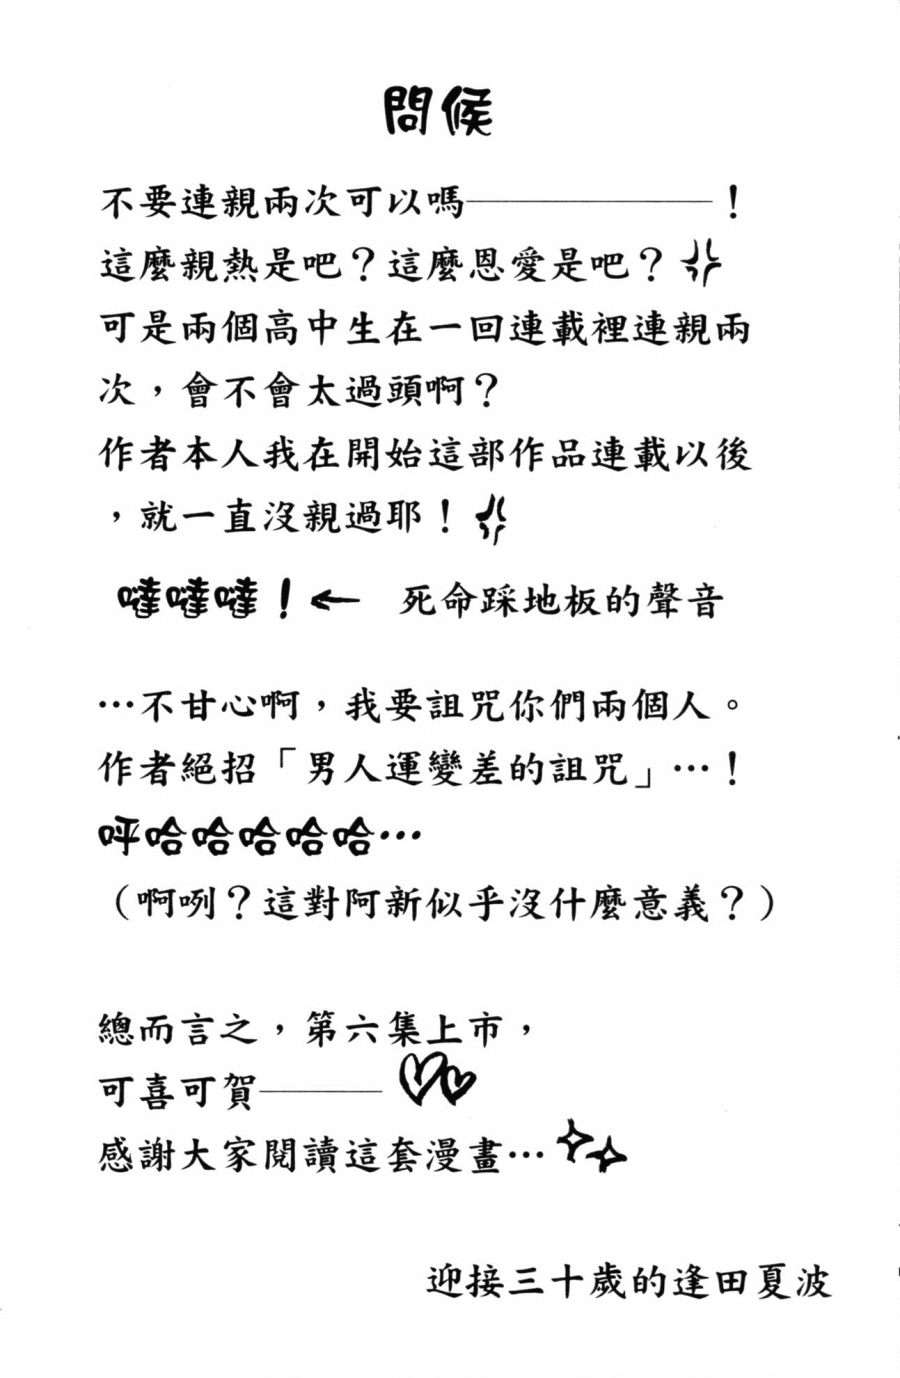 問候
不要連親兩次可以嗎——————！
這麼親熱是吧？這麼恩愛是吧？
可是兩個高中生在一回連載裡連親兩
次，會不會太過頭啊？
作者本人我在開始這部作品連載以後
，就一直沒親過耶！
噠噠噠！← 死命踩地板的聲音
…不甘心啊，我要詛咒你們兩個人。
作者絕招「男人運變差的詛咒」…！
呼哈哈哈哈哈…
（啊咧？這對阿新似乎沒什麼意義？）
總而言之，第六集上市，
可喜可賀———
感謝大家閱讀這套漫畫…
迎接三十歲的逢田夏波